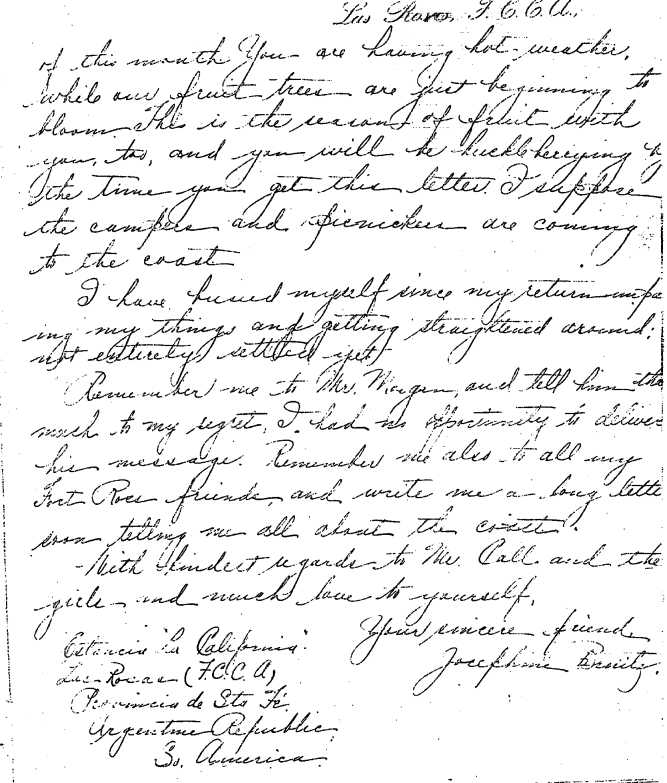 Las Rosas, F.C.C.A.,
of this month You are having hot weather,
while our fruit trees are just beginning to
bloom This is the season of fruit with
you, too, and you will be huckleberrying by
the time you get this letter. I suppose
the campers and picnickers are coming
to the coast
I have busied myself since my return unpa
ing my things and getting straightened around;
not entirely settled yet.
Remember me to Mr. Morgan, and tell him tha
much to my regret, I had no opportunity to deliver
his message. Remember me also to all my
Fort Ross friends, and write me a long lette
soon telling me all about the coast.
With kindest regards to Mr. Call and the
girls and much love to yourself,
Your sincere friend
Josephine
Estancia "La California"
Las Rosas (F.C.C.A)
Provincia de Sta Fé
Argentine Republic
So. America